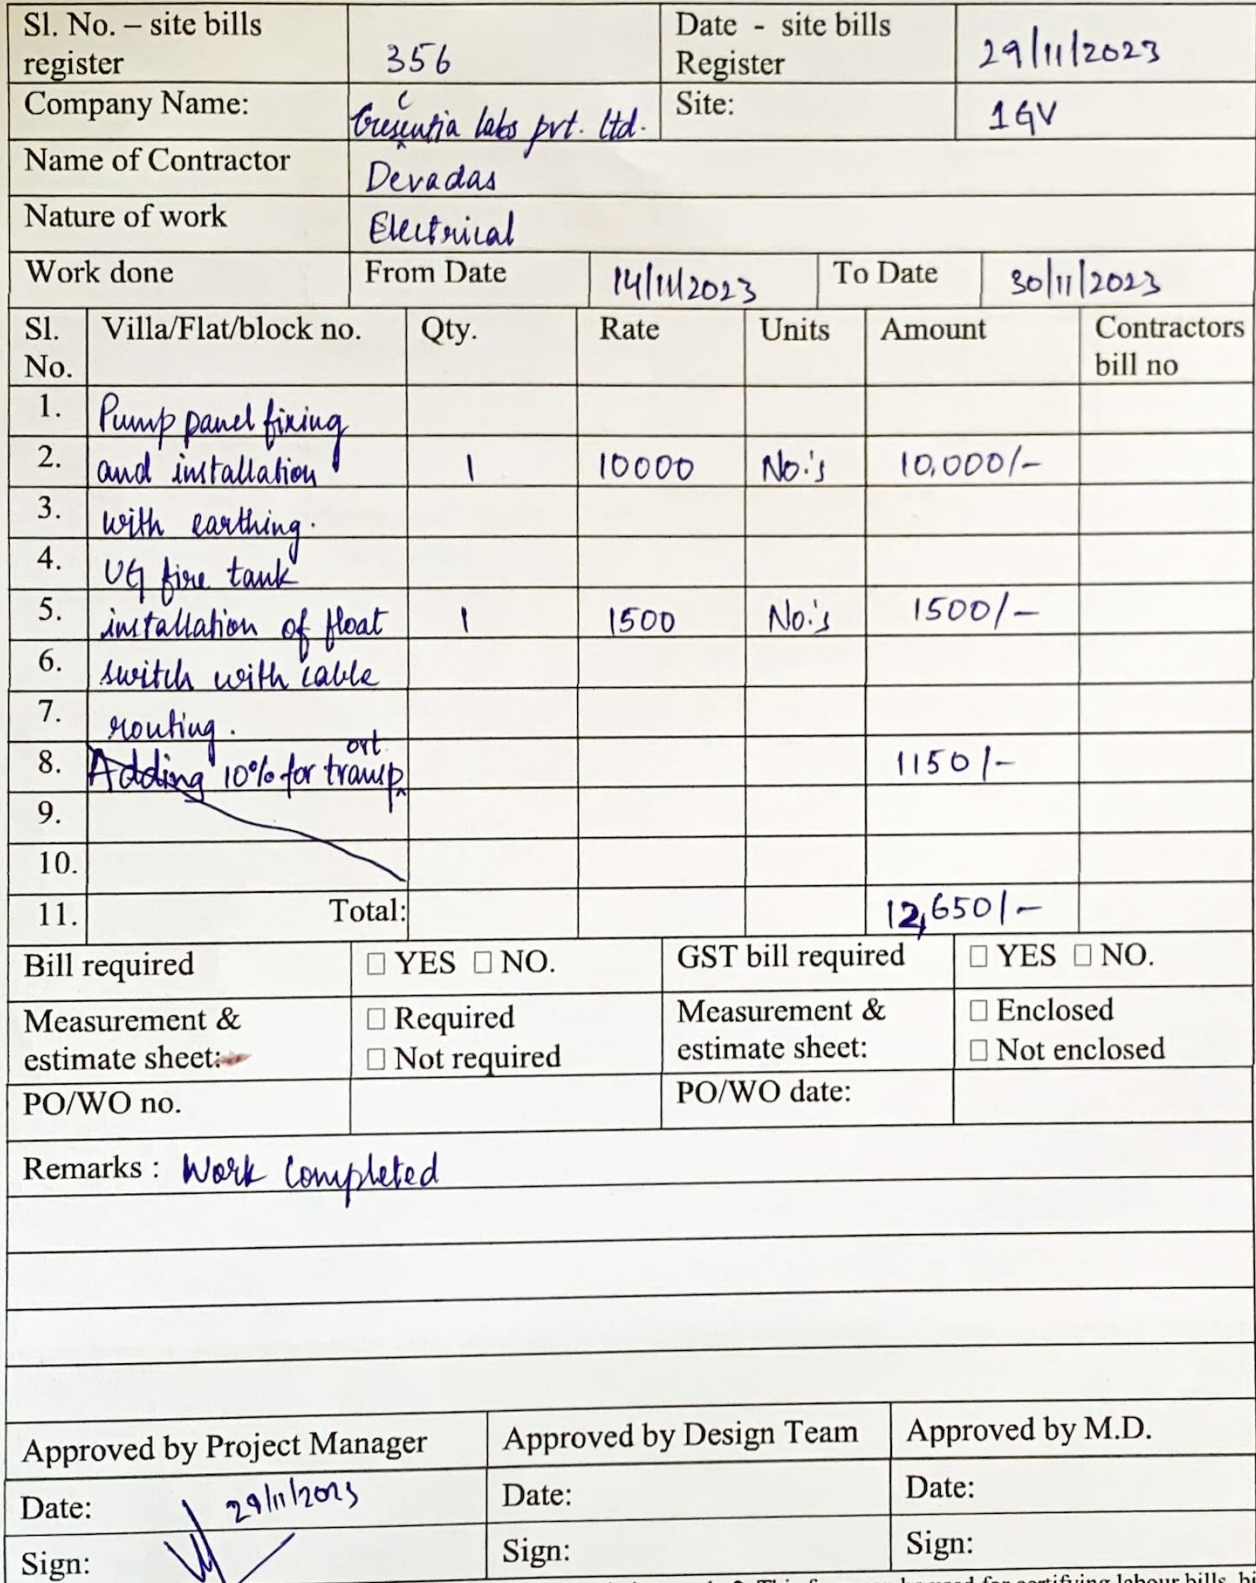 Sl. No. – site bills register 356 Date - site bills Register 29/11/2023
Company Name: Cresentia labs pvt. ltd. Site: IGV
Name of Contractor Devadas
Nature of work Electrical
Work done From Date 14/11/2023 To Date 30/11/2023
Sl. No. Villa/Flat/block no. Qty. Rate Units Amount Contractors bill no
1. Pump panel fixing
2. and installation 1 10000 No.'s 10,000/-
3. with earthing.
4. UG fire tank
5. installation of float 1 1500 No.'s 1500/-
6. switch with cable
7. routing.
8. Adding 10% for transport 1150/-
9.
10.
11. Total: 12,650/-
Bill required ☐ YES ☐ NO. GST bill required ☐ YES ☐ NO.
Measurement & estimate sheet: ☐ Required ☐ Not required Measurement & estimate sheet: ☐ Enclosed ☐ Not enclosed
PO/WO no. PO/WO date:
Remarks : Work Completed
Approved by Project Manager Approved by Design Team Approved by M.D.
Date: 29/11/2023 Date: Date:
Sign: Sign: Sign: